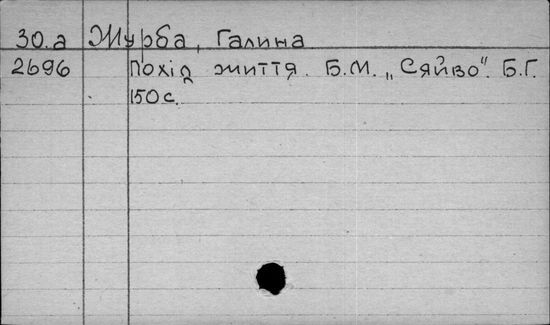 30.а Журба, Галина
2696 Похід життя. Б.М. „Сяйво". Б.Г.
150 с.